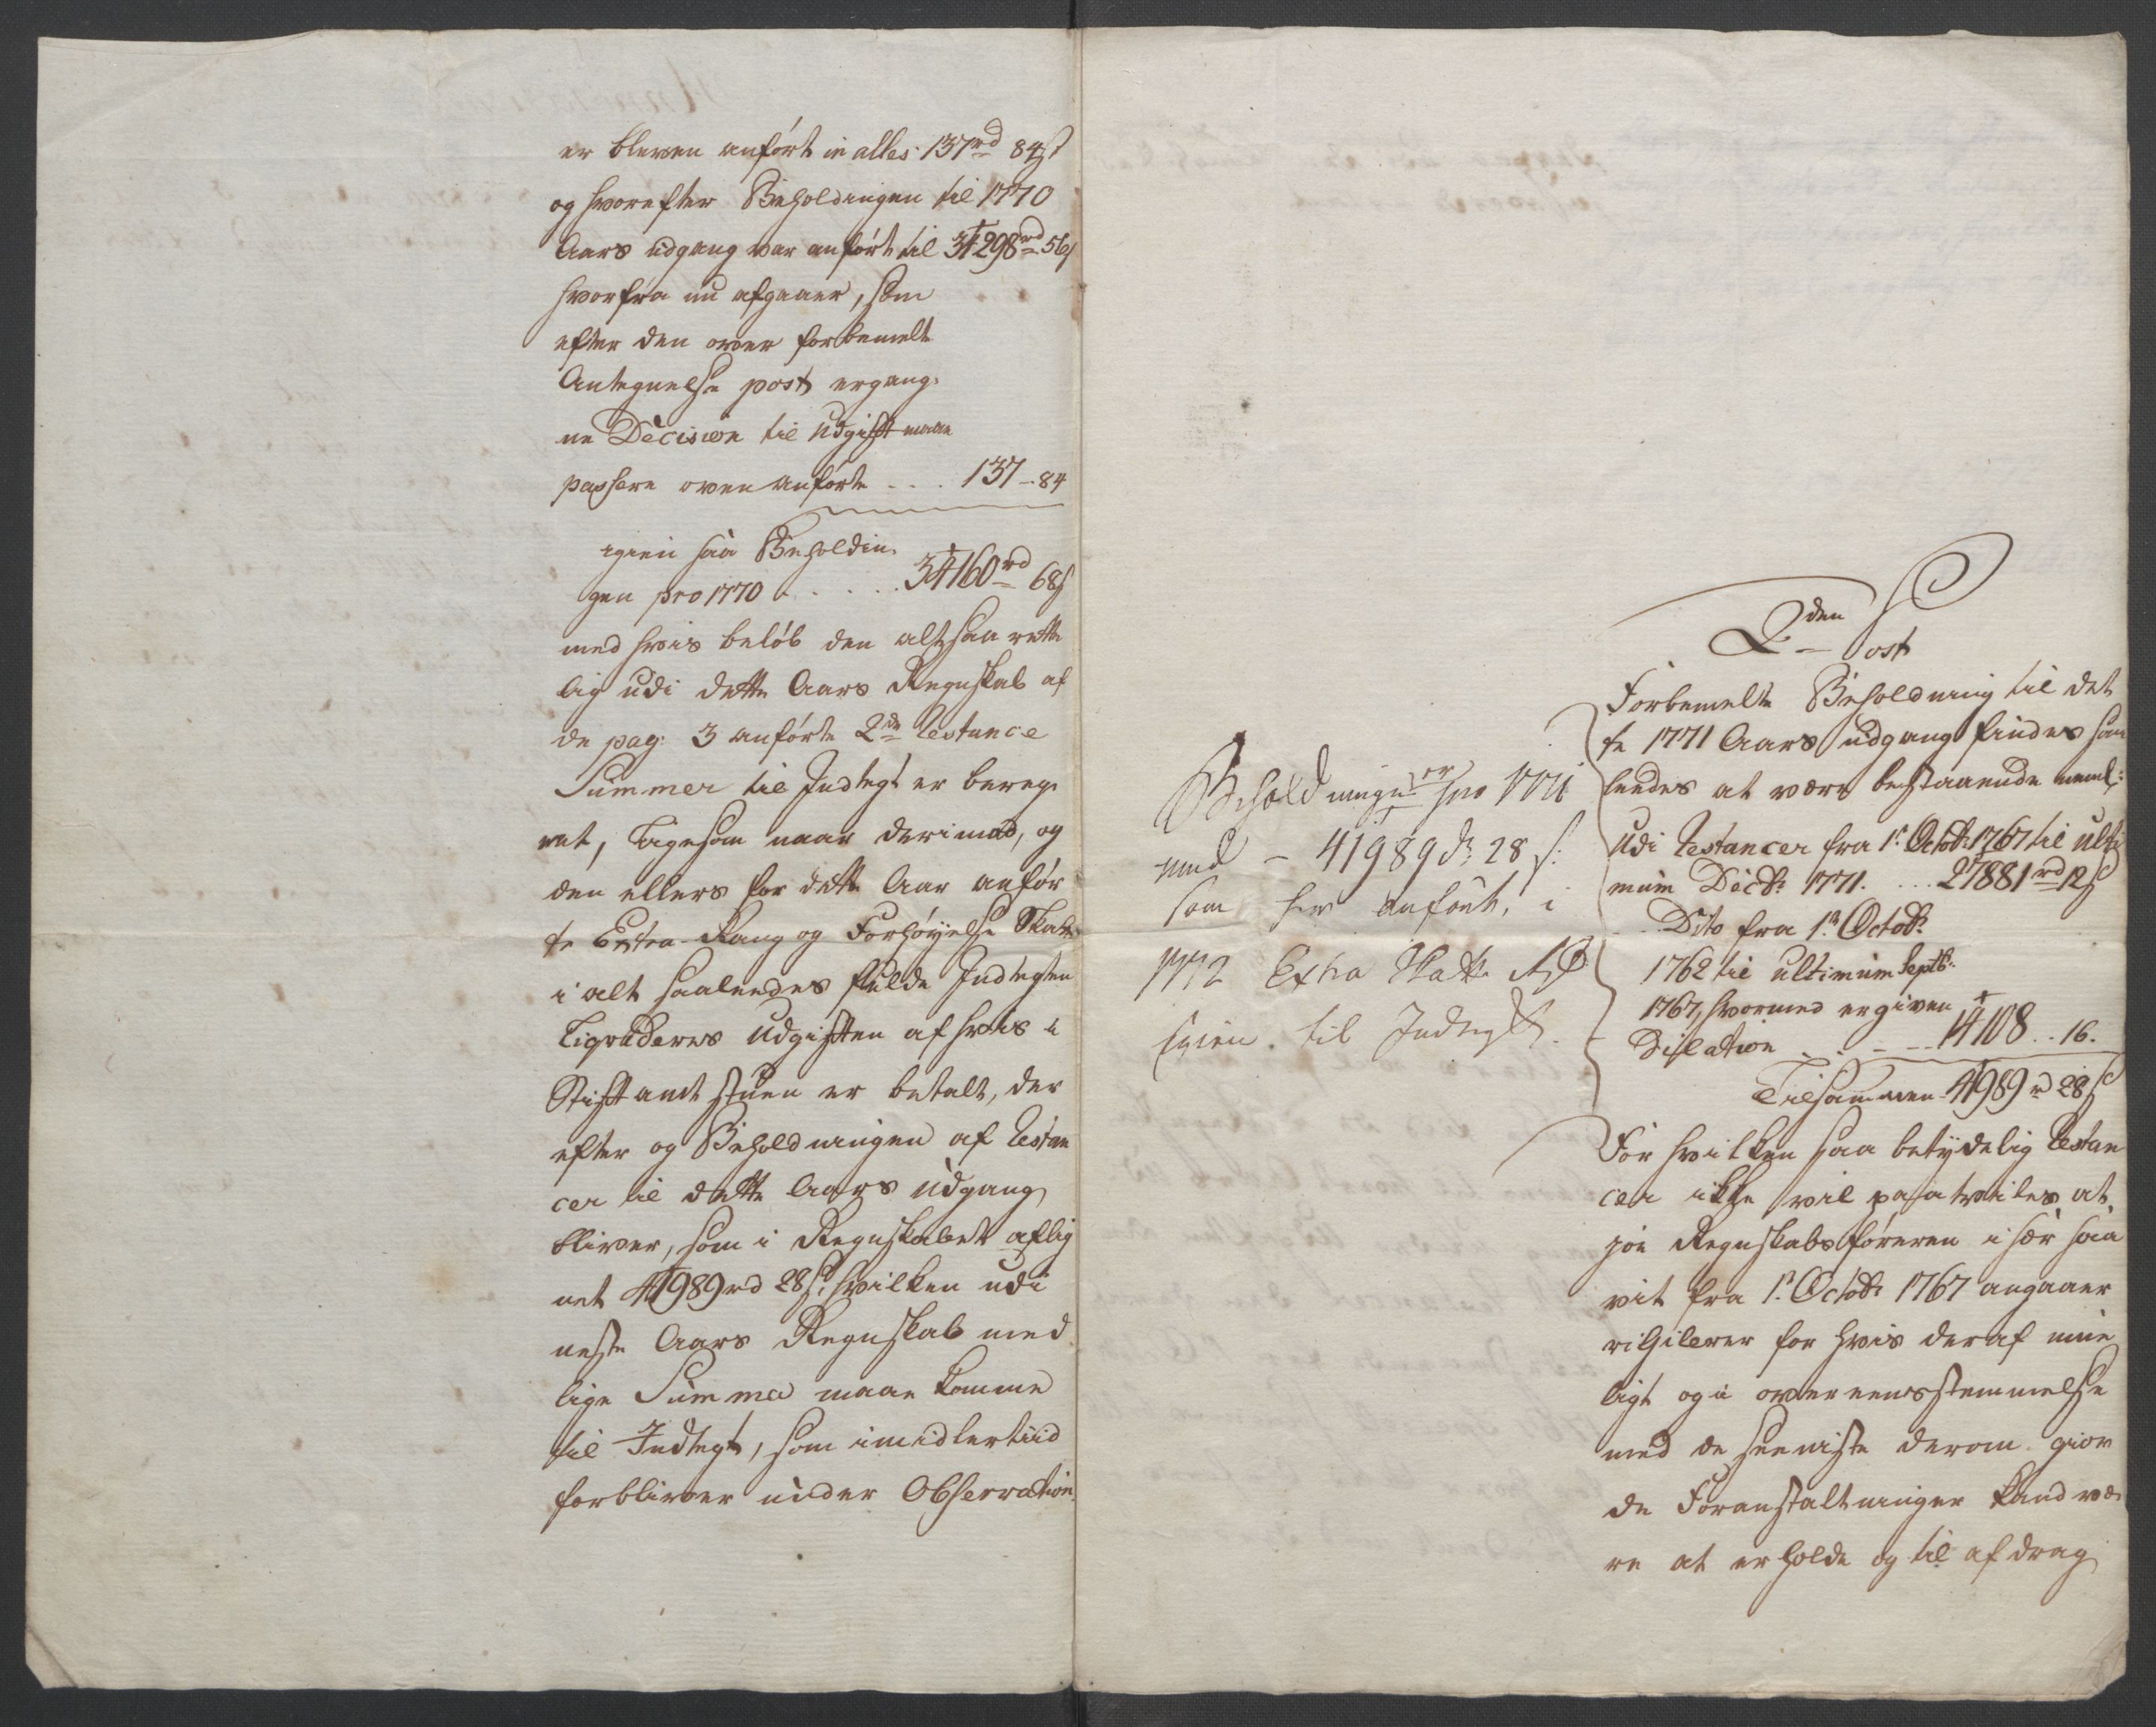 er bleven anført in alles 137rd 84s
og hvorefter Beholdingen til 1770
Aars udgang var anført til 34298rd 56s
hvorfra nu afgaaer, som
efter den over forbemelte
Antegnelse post ergang-
ne Decision til Udgift maae
passere oven anførte . . . 137 - 84
igien saa Beholdin-
gen pro 1770 . . . . . 34160rd 68s
med hvis beløb den altsaa rette
lig udi dette Aars Regnskab af
de pag: 3 anførte 2de Restance
Summer til Indtegt er bereg-
net, Ligesom naar derimod, og
den ellers for dette Aar anfør
te Extra- Rang og Forhøyelse Skatter
i alt saaledes fulde Indtegten
Liqviderer Udgiften af hvis i
Stiftamtstuen er betalt, der
efter og Beholdningen af Restan
cer til dette Aars udgang
bliver, som i Regnskabet aflig
net 41989rd 28s, hvilken udi
neste Aars Regnskab med
lige Summa maae komme
til Indtegt, som imidlertiid
forbliver under Observation.
Beholdningen er pro 1771
med - 41989 d. 28 s:
som her anført, i
1772 Extra Skatt
igien til Indtegt.
2den Post
Forbemelte Beholdning til det
te 1771 Aars udgang findes saa
ledes at være bestaaende neml:
Udi Restancer fra 1. Octob: 1767 til ulti
mum Decbr: 1771. . . . 27881rd 12s
Dito fra 1. Octob:
1762 til ultimum Septb:
1767, hvormed er given
Dilation . . - - 14108 . . 16.
Tilsammen 41989rd 28s
For hvilken saa betydelig Restan
cer ikke vil paatviles at
jo Regnskabsføreren især saa
vit fra 1. Octob: 1767 angaaer
vigilerer for hvis deraf mue
ligt og i overeensstemmelse
med de seeniste derom gior
de Foranstaltninger kand væ
re at erholde og til afdrag